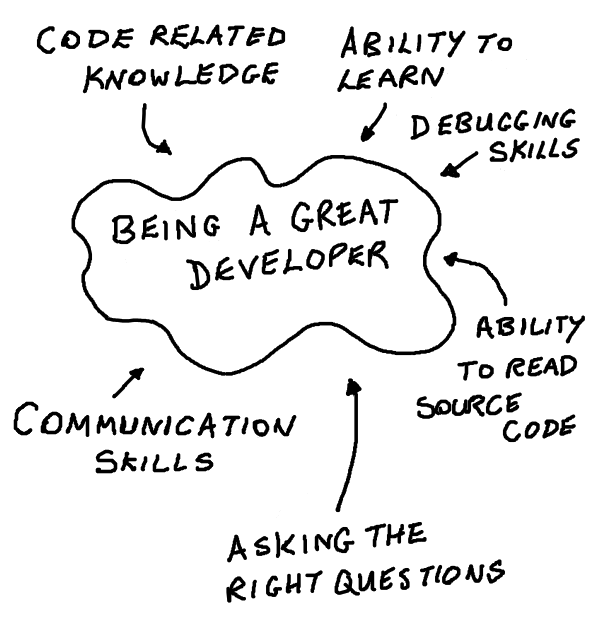 CODE RELATED
KNOWLEDGE
ABILITY TO
LEARN
DEBUGGING
SKILLS
BEING A GREAT
DEVELOPER
ABILITY
TO READ
SOURCE
CODE
COMMUNICATION
SKILLS
ASKING THE
RIGHT QUESTIONS